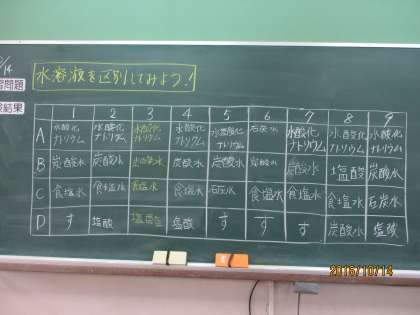 10/14
水溶液を区別してみよう!
習問題
験結果
1 2 3 4 5 6 7 8 9
A 水酸化ナトリウム 水酸化ナトリウム 水酸化ナトリウム 水酸化ナトリウム 水酸化ナトリウム 石灰水 水酸化ナトリウム 水酸化ナトリウム 水酸化ナトリウム
B 炭酸水 炭酸水 炭酸水 炭酸水 炭酸水 炭酸水 炭酸水 塩酸 炭酸水
C 食塩水 食塩水 食塩水 食塩水 石灰水 食塩水 食塩水 食塩水 石灰水
D す 塩酸 塩酸 塩酸 す す す 炭酸水 塩酸
2015/10/14